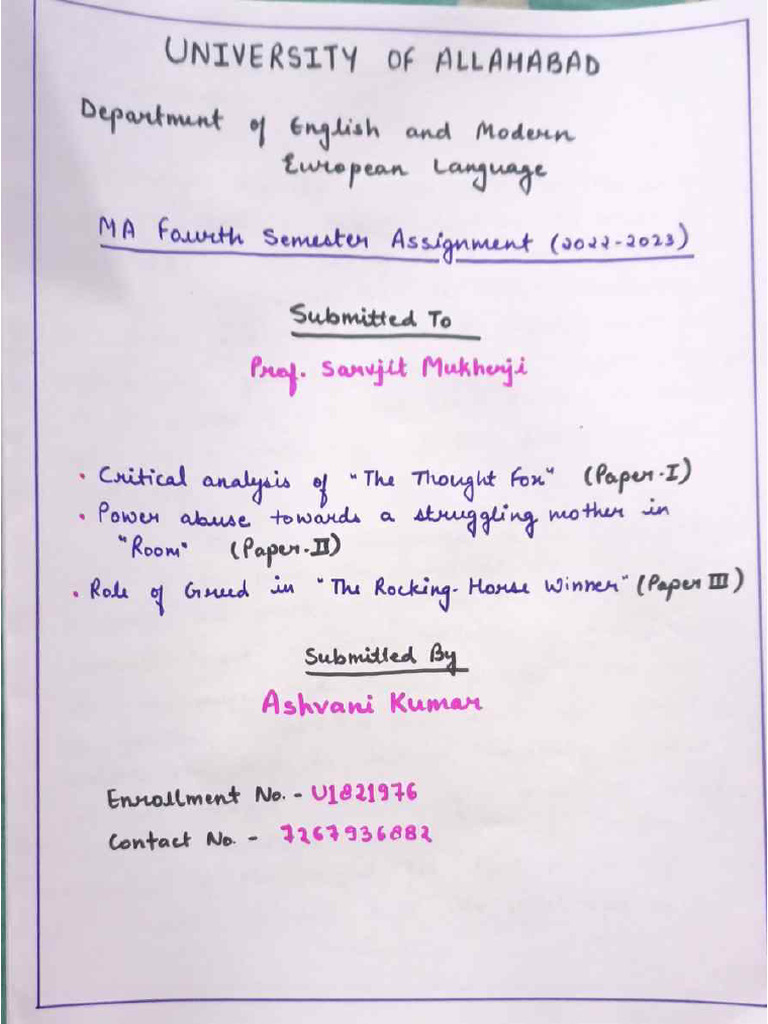 UNIVERSITY OF ALLAHABAD
Department of English and Modern
European Language
MA Fourth Semester Assignment (2022-2023)
Submitted To
Prof. Sarvjit Mukherji
• Critical analysis of "The Thought Fox" (Paper-I)
• Power abuse towards a struggling mother in
"Room" (Paper-II)
• Role of Greed in "The Rocking-Horse Winner" (Paper III)
Submitted By
Ashvani Kumar
Enrollment No. - U1821976
Contact No. - 7267936882